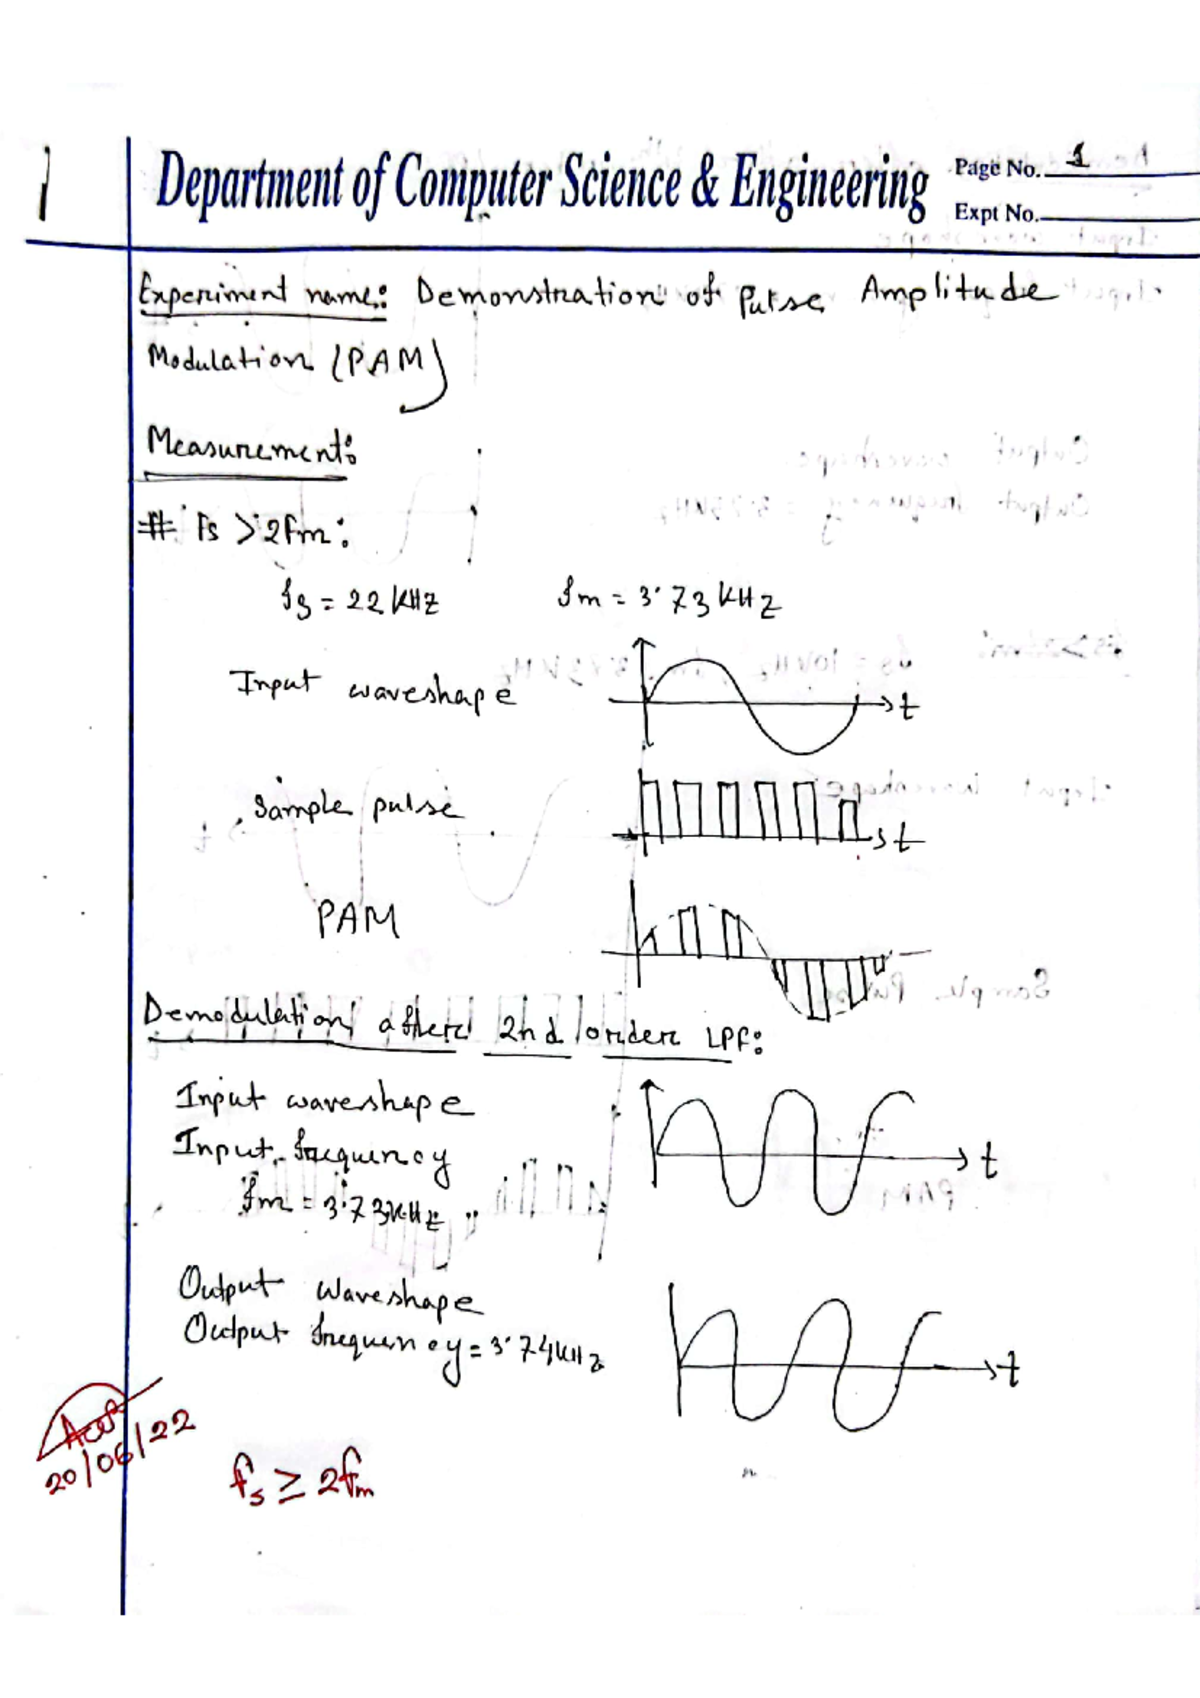 1
Department of Computer Science & Engineering
Page No. 1
Expt No.
Experiment name: Demonstration of Pulse Amplitude
Modulation (PAM)
Measurement:
# fs > 2fm:
fs = 22 KHZ fm = 3.73 KHZ
Input waveshape
t
Sample pulse
t
PAM
Demodulation after 2nd order LPF:
Input waveshape
Input frequency
fm = 3.73KHZ
t
Output waveshape
Output frequency = 3.74KHz
t
20/06/22
fs ≥ 2fm